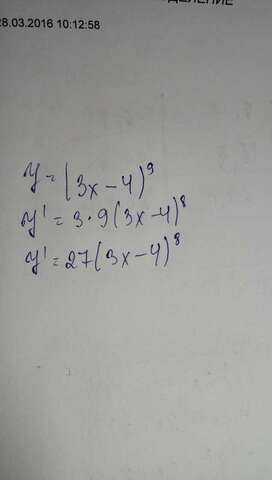 28.03.2016 10:12:58
y = (3x-4)^9
y' = 3·9(3x-4)^8
y' = 27(3x-4)^8